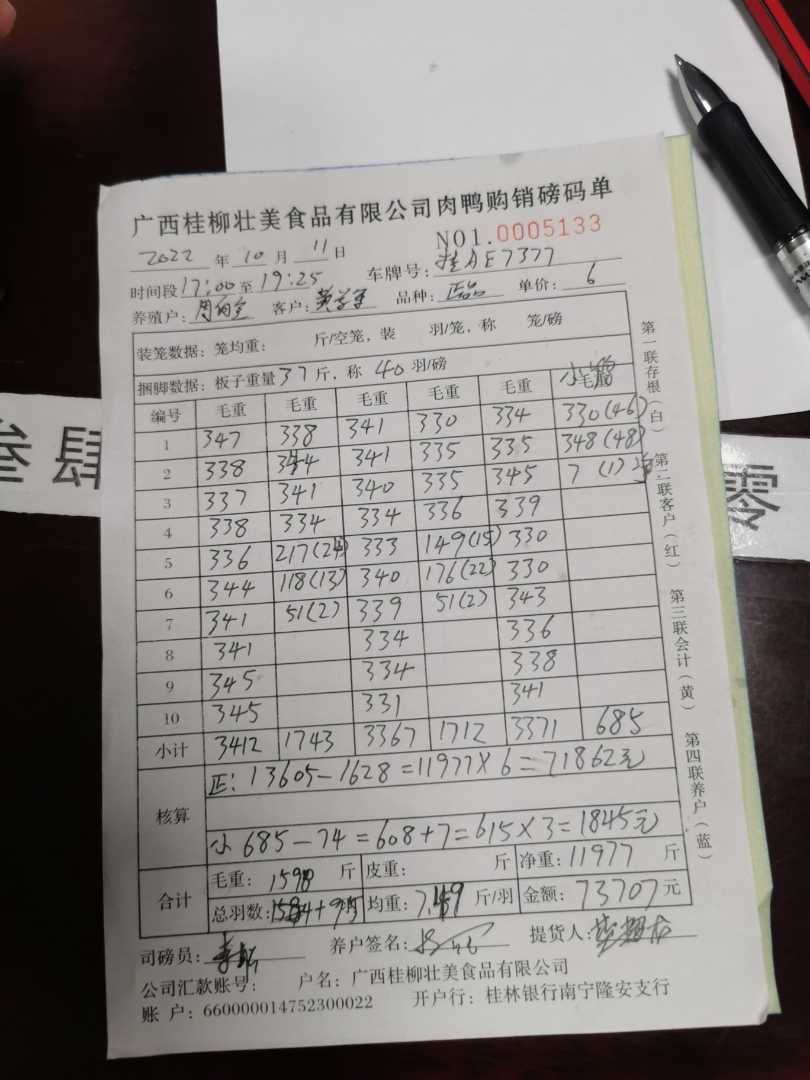 广西桂柳壮美食品有限公司肉鸭购销磅码单
NO1.0005133
2022 年 10 月 11 日
时间段 17:00 至 19:25 车牌号: 桂AE7377
养殖户: 客户: 品种: 正品 单价: 6
装笼数据: 笼均重: 斤/空笼, 装 羽/笼, 称 笼/磅
捆脚数据: 板子重量 37 斤, 称 40 羽/磅
小鸭
编号 毛重 毛重 毛重 毛重 毛重 毛重
1 347 338 341 330 334 330(46)
2 338 344 341 335 335 348(48)
3 337 341 340 335 345 7(1)
4 338 334 334 336 339
5 336 217(24) 333 149(15) 330
6 344 118(13) 340 176(22) 330
7 341 51(2) 339 51(2) 343
8 341 334 336
9 345 334 338
10 345 331 341
小计 3412 1743 3367 1712 3371 685
核算
正: 13605-1628=11977×6=71862元
小 685-74=608+7=615×3=1845元
合计
毛重: 斤 皮重: 斤 净重: 11977 斤
总羽数: 均重: 斤/羽 金额: 73707 元
司磅员: 养户签名: 提货人:
公司汇款账号: 户名: 广西桂柳壮美食品有限公司
账 户: 660000014752300022 开户行: 桂林银行南宁隆安支行
第一联存根(白) 第二联客户(红) 第三联会计(黄) 第四联养户(蓝)
叁肆
零